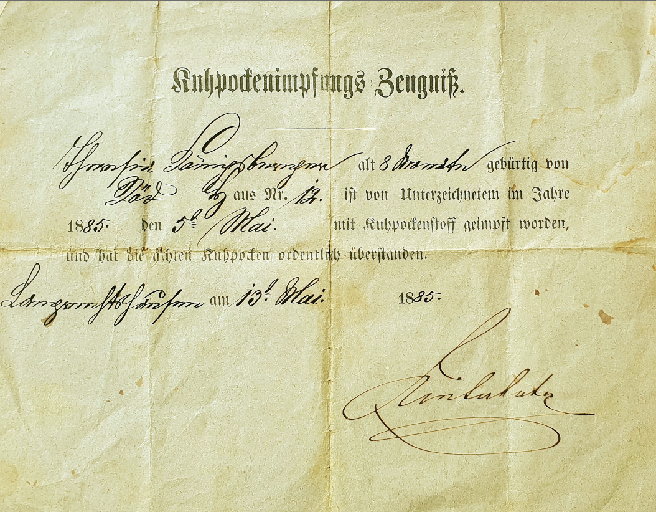 Kuhpockenimpfungs Zeugniß.
Theresia Königsberger alt 8 Monate gebürtig von
aus Nr. 12. ist von Unterzeichnetem im Jahre
1885. den 5t Mai. mit Kuhpockenstoff geimpft worden,
und hat die ächten Kuhpocken ordentlich überstanden.
Lamprechtshausen am 13t Mai. 1885.